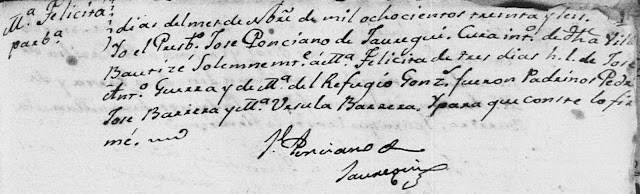 Ma. Felicita
parba.
dias del mes de Nbre. de mil ochocientos treinta y seis.
Yo el Presbo. Jose Ponciano de Jauregui, Cura into. de dha. Villa
Bautizé Solemnemte. á Ma. Felicita de tres dias h. l. de Jose
Anto. Guerra y de Ma. del Refugio Gonzz. fueron Padrinos Pedro
Jose Barrera y Ma. Ursula Barrera. Y para que conste lo fir
mé.
Je. Ponciano de
Jauregui